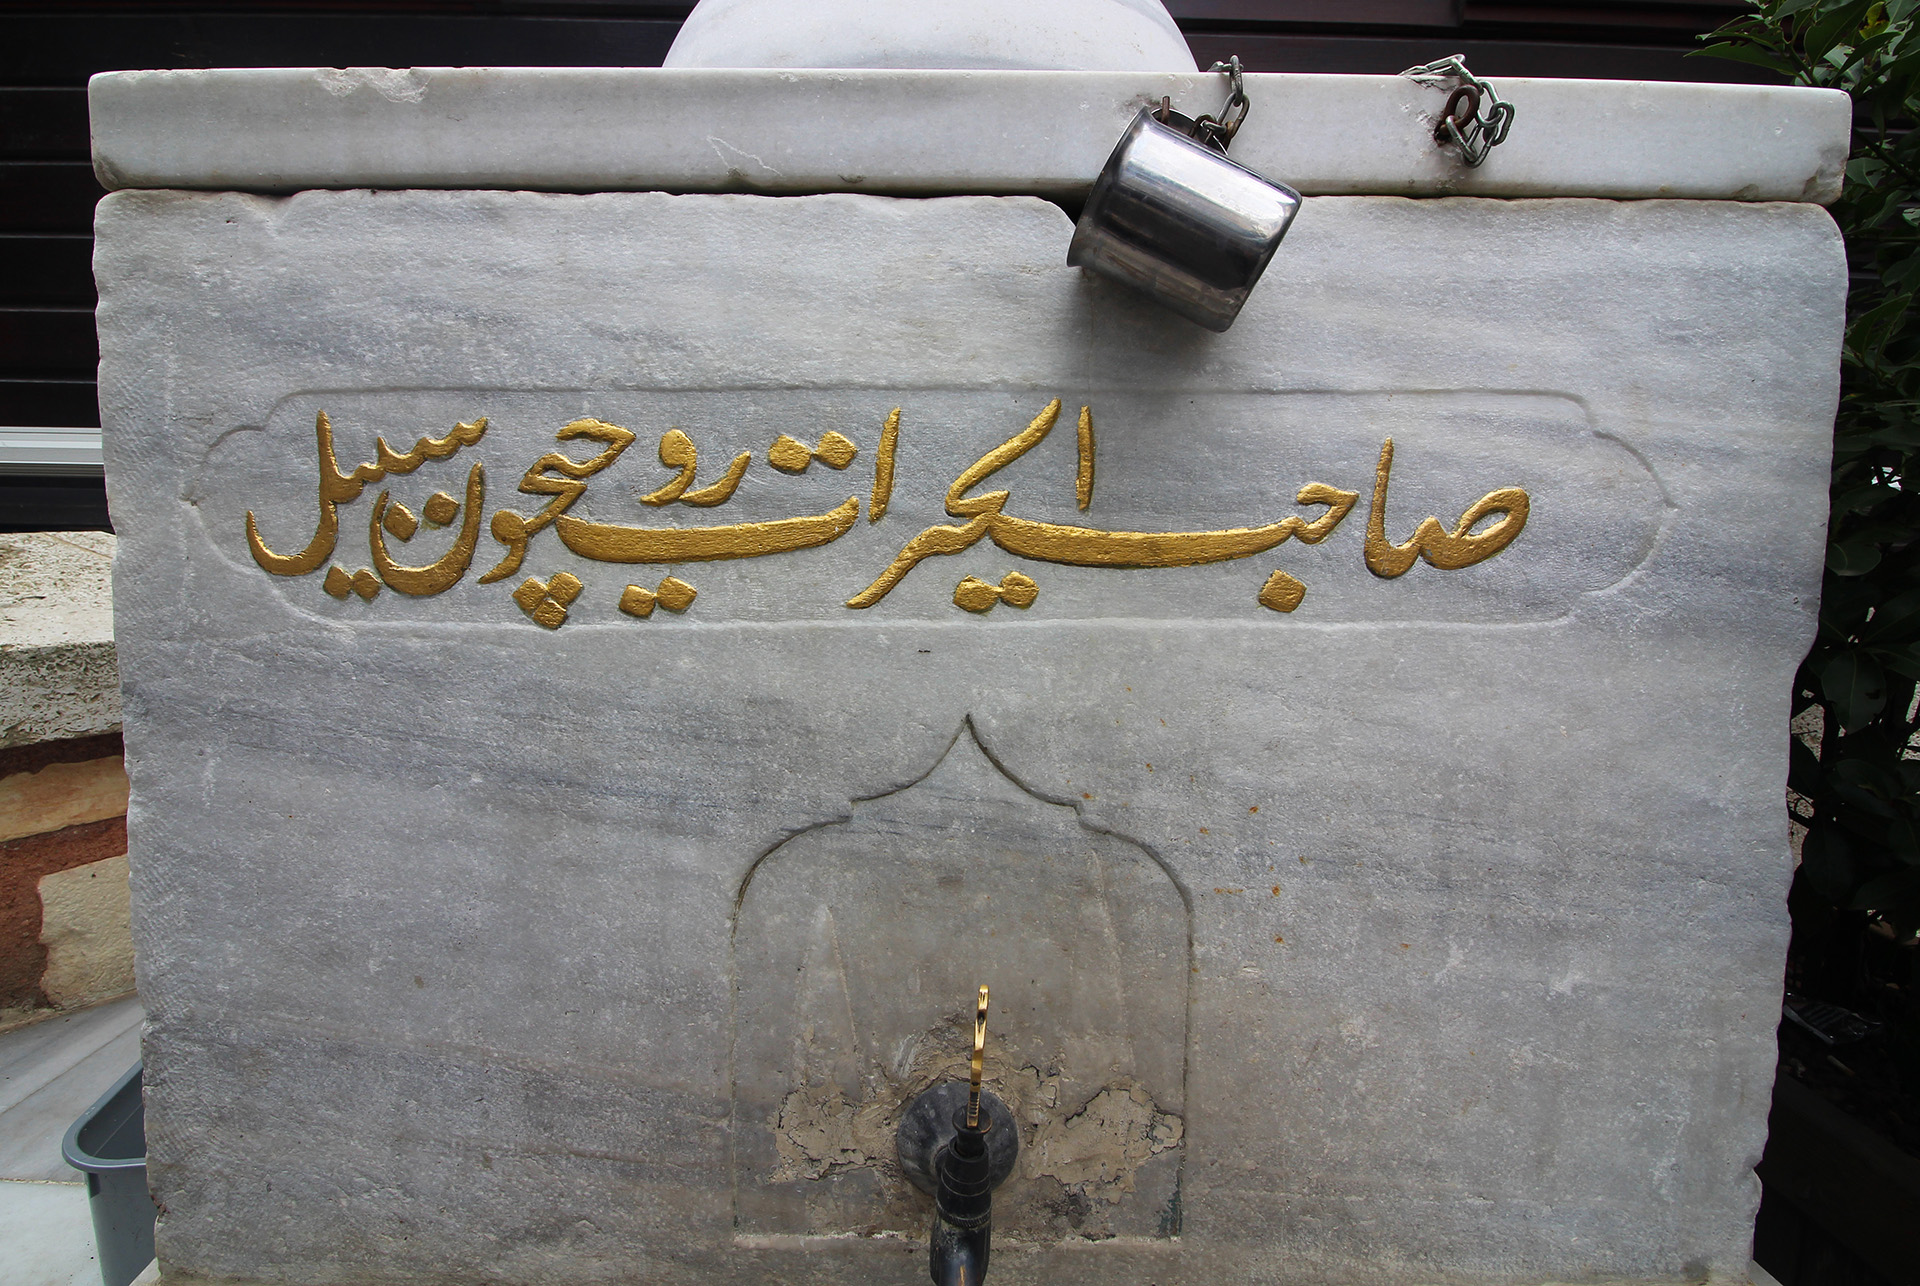 صاحب الخيرات روحيچون سبيل